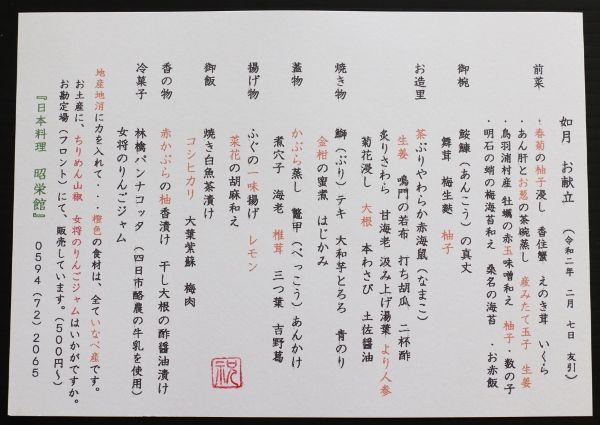 如月　お献立　（令和二年　二月　七日　友引）
前菜　・春菊の柚子浸し　香住蟹　えのき茸　いくら
・あん肝とお葱の茶碗蒸し　産みたて玉子　生姜
・鳥羽浦村産　牡蠣の赤玉味噌和え　柚子・数の子
・明石の蛸の梅海苔和え　桑名の海苔　・お赤飯
御椀　鮟鱇（あんこう）の真丈
舞茸　梅生麩　柚子
お造里　茶ぶりやわらか赤海鼠（なまこ）
生姜　鳴門の若布　打ち胡瓜　二杯酢
炙りさわら　甘海老　汲み上げ湯葉　より人参
菊花浸し　大根　本わさび　土佐醤油
焼き物　鰤（ぶり）テキ　大和芋とろろ　青のり
金柑の蜜煮　はじかみ
蓋物　かぶら蒸し　鼈甲（べっこう）あんかけ
煮穴子　海老　椎茸　三つ葉　吉野葛
揚げ物　ふぐの一味揚げ　レモン
菜花の胡麻和え
御飯　焼き白魚茶漬け
コシヒカリ　大葉紫蘇　梅肉
香の物　赤かぶらの柚香漬け　干し大根の酢醤油漬け
冷菓子　林檎パンナコッタ　（四日市酪農の牛乳を使用）
女将のりんごジャム
地産地消に力を入れて・・・橙色の食材は、全ていなべ産です。
お土産に、ちりめん山椒　女将のりんごジャムはいかがですか。
お勘定場（フロント）にて、販売しています。（５００円〜）
『日本料理　昭栄館』　０５９４（７２）２０６５
祝